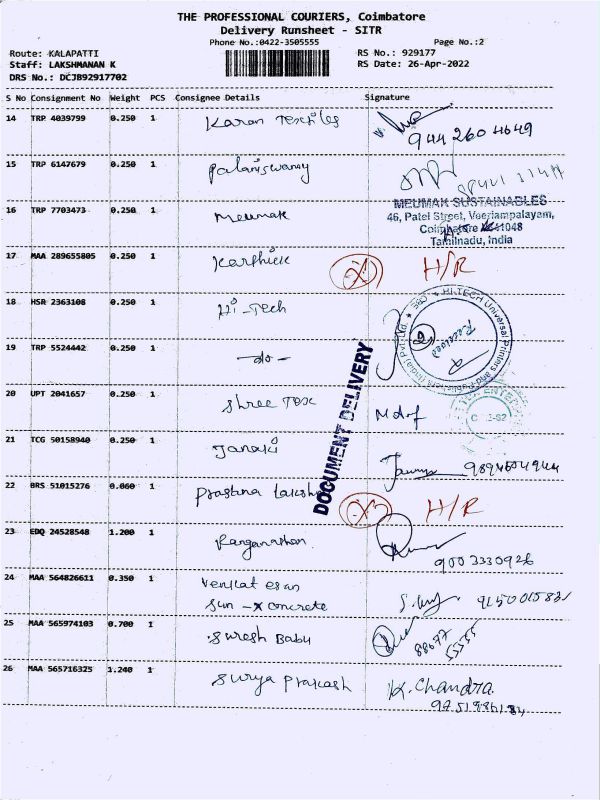 THE PROFESSIONAL COURIERS, Coimbatore
Delivery Runsheet - SITR
Phone No.:0422-3505555 Page No.:2
Route: KALAPATTI RS No.: 929177
Staff: LAKSHMANAN K RS Date: 26-Apr-2022
DRS No.: DCJB92917702
S No Consignment No Weight PCS Consignee Details Signature
14 TRP 4039799 0.250 1 Karan Textiles
944 260 4649
15 TRP 6147679 0.250 1 Palaniswamy
16 TRP 7703473 0.250 1 Meumak
MEUMAK SUSTAINABLES
46, Patel Street, Veeriampalayam,
Coimbatore 641048
Tamilnadu, India
17 MAA 289655805 0.250 1 Karthick X H/R
18 HSR 2363108 0.250 1 Hi-Tech
HI-TECH Universal Printers and Publishers (India) Pvt Ltd. CBE
Received
19 TRP 5524442 0.250 1 -do-
DOCUMENT DELIVERY
20 UPT 2041657 0.250 1 Shree Tex
21 TCG 50158940 0.250 1 Janaki
22 BRS 51015276 0.060 1 X H/R
23 EDQ 24528548 1.200 1
900 3330926
24 MAA 564826611 0.350 1 Venkatesan
Sun-X concrete
25 MAA 565974103 0.700 1 Suresh Babu
88677
55555
26 MAA 565716325 1.240 1 Surya Prakash K. Chandra